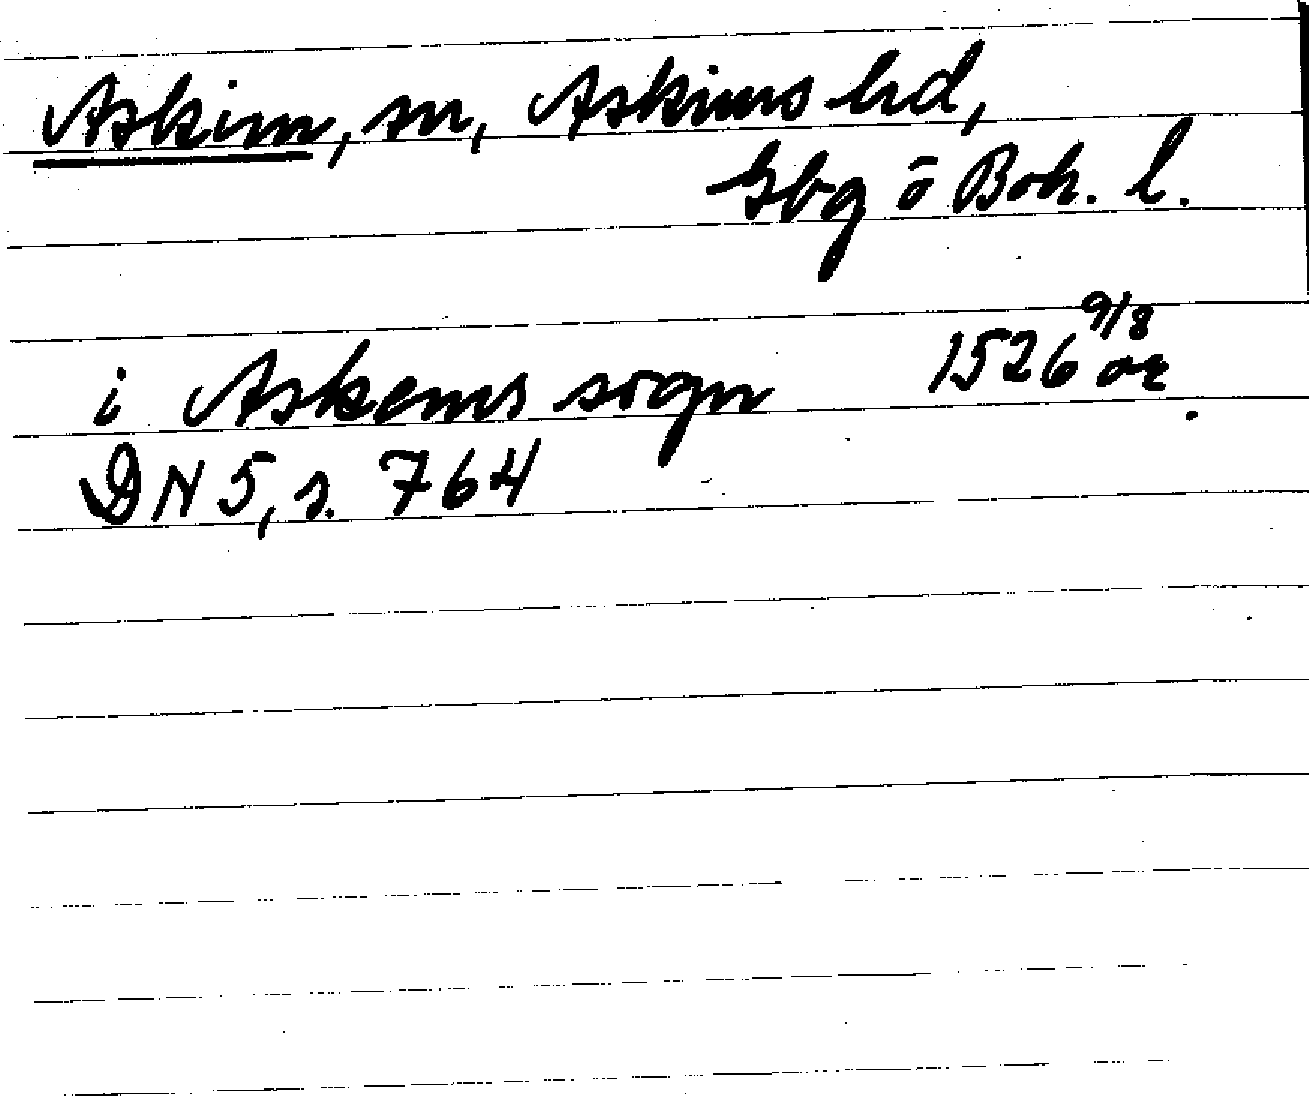 Askim, sn, Askims hd,
Gbg o Boh. l.
i Askems sogn 1526 9/8 or.
DN 5, s. 764